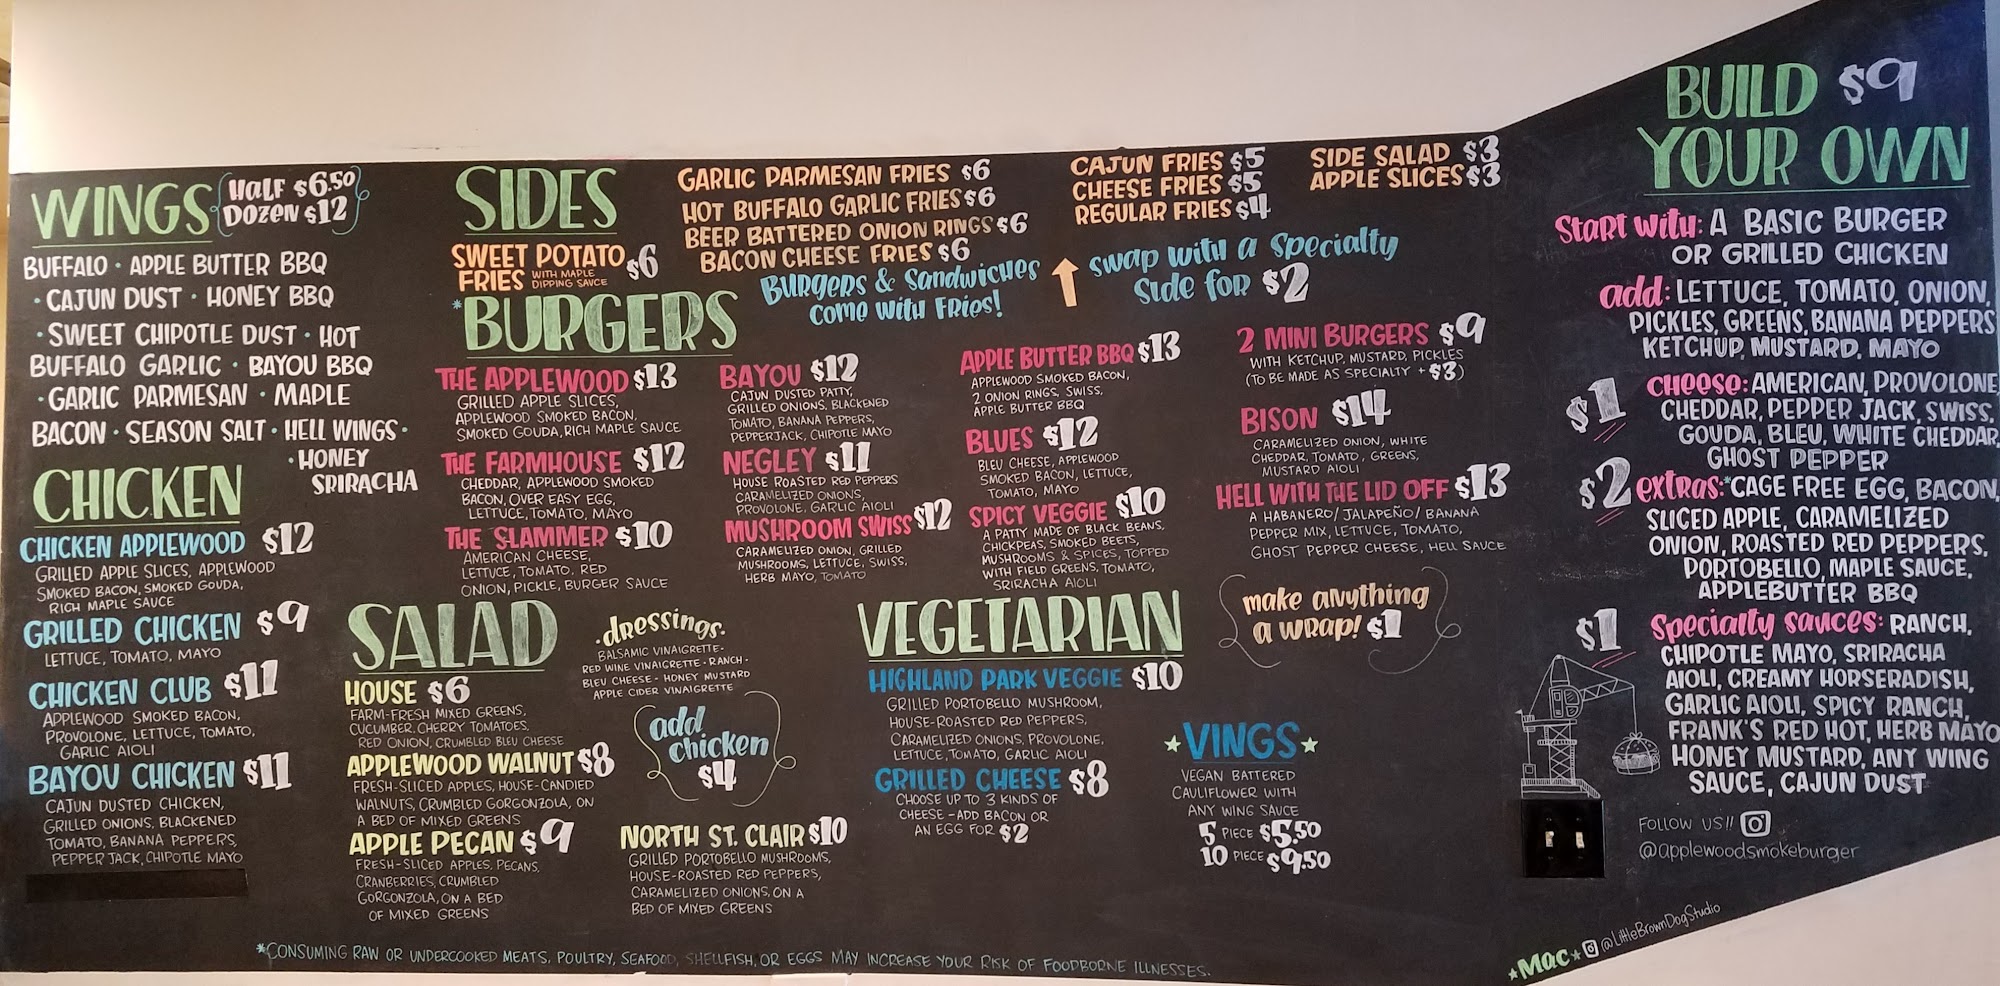 WINGS
HALF $6.50
DOZEN $12
BUFFALO · APPLE BUTTER BBQ
· CAJUN DUST · HONEY BBQ
· SWEET CHIPOTLE DUST · HOT
BUFFALO GARLIC · BAYOU BBQ
· GARLIC PARMESAN · MAPLE
BACON · SEASON SALT · HELL WINGS ·
· HONEY
SRIRACHA
CHICKEN
CHICKEN APPLEWOOD $12
GRILLED APPLE SLICES, APPLEWOOD
SMOKED BACON, SMOKED GOUDA,
RICH MAPLE SAUCE
GRILLED CHICKEN $9
LETTUCE, TOMATO, MAYO
CHICKEN CLUB $11
APPLEWOOD SMOKED BACON,
PROVOLONE, LETTUCE, TOMATO,
GARLIC AIOLI
BAYOU CHICKEN $11
CAJUN DUSTED CHICKEN,
GRILLED ONIONS, BLACKENED
TOMATO, BANANA PEPPERS,
PEPPER JACK, CHIPOTLE MAYO
SIDES
SWEET POTATO
FRIES WITH MAPLE
DIPPING SAUCE $6
GARLIC PARMESAN FRIES $6
HOT BUFFALO GARLIC FRIES $6
BEER BATTERED ONION RINGS $6
BACON CHEESE FRIES $6
CAJUN FRIES $5
CHEESE FRIES $5
REGULAR FRIES $4
SIDE SALAD $3
APPLE SLICES $3
BURGERS & SANDWICHES
COME WITH FRIES!
SWAP WITH A SPECIALTY
SIDE FOR $2
*BURGERS
THE APPLEWOOD $13
GRILLED APPLE SLICES,
APPLEWOOD SMOKED BACON,
SMOKED GOUDA, RICH MAPLE SAUCE
THE FARMHOUSE $12
CHEDDAR, APPLEWOOD SMOKED
BACON, OVER EASY EGG,
LETTUCE, TOMATO, MAYO
THE SLAMMER $10
AMERICAN CHEESE,
LETTUCE, TOMATO, RED
ONION, PICKLE, BURGER SAUCE
BAYOU $12
CAJUN DUSTED PATTY,
GRILLED ONIONS, BLACKENED
TOMATO, BANANA PEPPERS,
PEPPERJACK, CHIPOTLE MAYO
NEGLEY $11
HOUSE ROASTED RED PEPPERS
CARAMELIZED ONIONS,
PROVOLONE, GARLIC AIOLI
MUSHROOM SWISS $12
CARAMELIZED ONION, GRILLED
MUSHROOMS, LETTUCE, SWISS,
HERB MAYO, TOMATO
APPLE BUTTER BBQ $13
APPLEWOOD SMOKED BACON,
2 ONION RINGS, SWISS,
APPLE BUTTER BBQ
BLUES $12
BLEU CHEESE, APPLEWOOD
SMOKED BACON, LETTUCE,
TOMATO, MAYO
SPICY VEGGIE $10
A PATTY MADE OF BLACK BEANS,
CHICKPEAS, SMOKED BEETS,
MUSHROOMS & SPICES, TOPPED
WITH FIELD GREENS, TOMATO,
SRIRACHA AIOLI
2 MINI BURGERS $9
WITH KETCHUP, MUSTARD, PICKLES
(TO BE MADE AS SPECIALTY + $3)
BISON $14
CARAMELIZED ONION, WHITE
CHEDDAR, TOMATO, GREENS,
MUSTARD AIOLI
HELL WITH THE LID OFF $13
A HABANERO/JALAPEÑO/BANANA
PEPPER MIX, LETTUCE, TOMATO,
GHOST PEPPER CHEESE, HELL SAUCE
make anything
a wrap! $1
SALAD
HOUSE $6
FARM-FRESH MIXED GREENS,
CUCUMBER, CHERRY TOMATOES,
RED ONION, CRUMBLED BLEU CHEESE
APPLEWOOD WALNUT $8
FRESH-SLICED APPLES, HOUSE-CANDIED
WALNUTS, CRUMBLED GORGONZOLA, ON
A BED OF MIXED GREENS
APPLE PECAN $9
FRESH-SLICED APPLES, PECANS,
CRANBERRIES, CRUMBLED
GORGONZOLA, ON A BED
OF MIXED GREENS
·dressings·
BALSAMIC VINAIGRETTE ·
RED WINE VINAIGRETTE · RANCH ·
BLEU CHEESE · HONEY MUSTARD
APPLE CIDER VINAIGRETTE
add
chicken
$4
NORTH ST. CLAIR $10
GRILLED PORTOBELLO MUSHROOMS,
HOUSE-ROASTED RED PEPPERS,
CARAMELIZED ONIONS, ON A
BED OF MIXED GREENS
VEGETARIAN
HIGHLAND PARK VEGGIE $10
GRILLED PORTOBELLO MUSHROOM,
HOUSE-ROASTED RED PEPPERS,
CARAMELIZED ONIONS, PROVOLONE,
LETTUCE, TOMATO, GARLIC AIOLI
GRILLED CHEESE $8
CHOOSE UP TO 3 KINDS OF
CHEESE - ADD BACON OR
AN EGG FOR $2
VINGS
VEGAN BATTERED
CAULIFLOWER WITH
ANY WING SAUCE
5 PIECE $5.50
10 PIECE $9.50
*CONSUMING RAW OR UNDERCOOKED MEATS, POULTRY, SEAFOOD, SHELLFISH, OR EGGS MAY INCREASE YOUR RISK OF FOODBORNE ILLNESSES.
BUILD $9
YOUR OWN
Start with: A BASIC BURGER
OR GRILLED CHICKEN
add: LETTUCE, TOMATO, ONION,
PICKLES, GREENS, BANANA PEPPERS
KETCHUP, MUSTARD, MAYO
$1 cheese: AMERICAN, PROVOLONE
CHEDDAR, PEPPER JACK, SWISS,
GOUDA, BLEU, WHITE CHEDDAR,
GHOST PEPPER
$2 extras: *CAGE FREE EGG, BACON,
SLICED APPLE, CARAMELIZED
ONION, ROASTED RED PEPPERS,
PORTOBELLO, MAPLE SAUCE,
APPLEBUTTER BBQ
$1 Specialty sauces: RANCH,
CHIPOTLE MAYO, SRIRACHA
AIOLI, CREAMY HORSERADISH,
GARLIC AIOLI, SPICY RANCH,
FRANK'S RED HOT, HERB MAYO
HONEY MUSTARD, ANY WING
SAUCE, CAJUN DUST
FOLLOW US!!
@applewoodsmokeburger
*Mac* @LittleBrownDogStudio